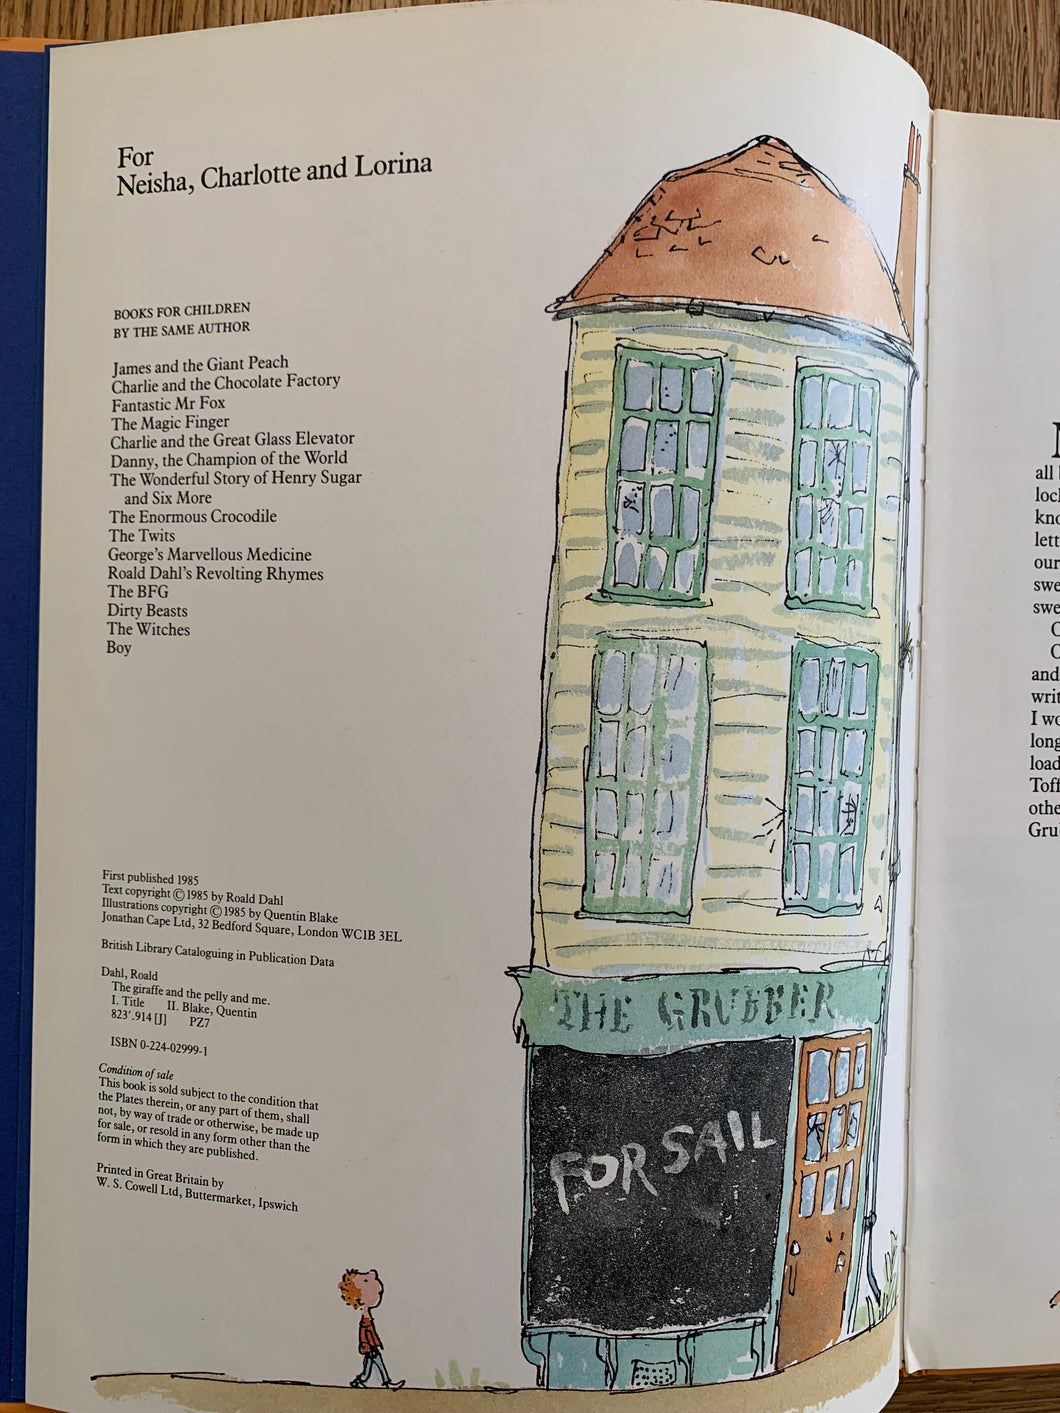 For
Neisha, Charlotte and Lorina
BOOKS FOR CHILDREN
BY THE SAME AUTHOR
James and the Giant Peach
Charlie and the Chocolate Factory
Fantastic Mr Fox
The Magic Finger
Charlie and the Great Glass Elevator
Danny, the Champion of the World
The Wonderful Story of Henry Sugar
and Six More
The Enormous Crocodile
The Twits
George's Marvellous Medicine
Roald Dahl's Revolting Rhymes
The BFG
Dirty Beasts
The Witches
Boy
First published 1985
Text copyright © 1985 by Roald Dahl
Illustrations copyright © 1985 by Quentin Blake
Jonathan Cape Ltd, 32 Bedford Square, London WC1B 3EL
British Library Cataloguing in Publication Data
Dahl, Roald
The giraffe and the pelly and me.
I. Title II. Blake, Quentin
823'.914 [J] PZ7
ISBN 0-224-02999-1
Condition of sale
This book is sold subject to the condition that
the Plates therein, or any part of them, shall
not, by way of trade or otherwise, be made up
for sale, or resold in any form other than the
form in which they are published.
Printed in Great Britain by
W. S. Cowell Ltd, Buttermarket, Ipswich
THE GRUBBER
FOR SAIL
all
our
and
I wo
long
load
Toff
othe
Gru